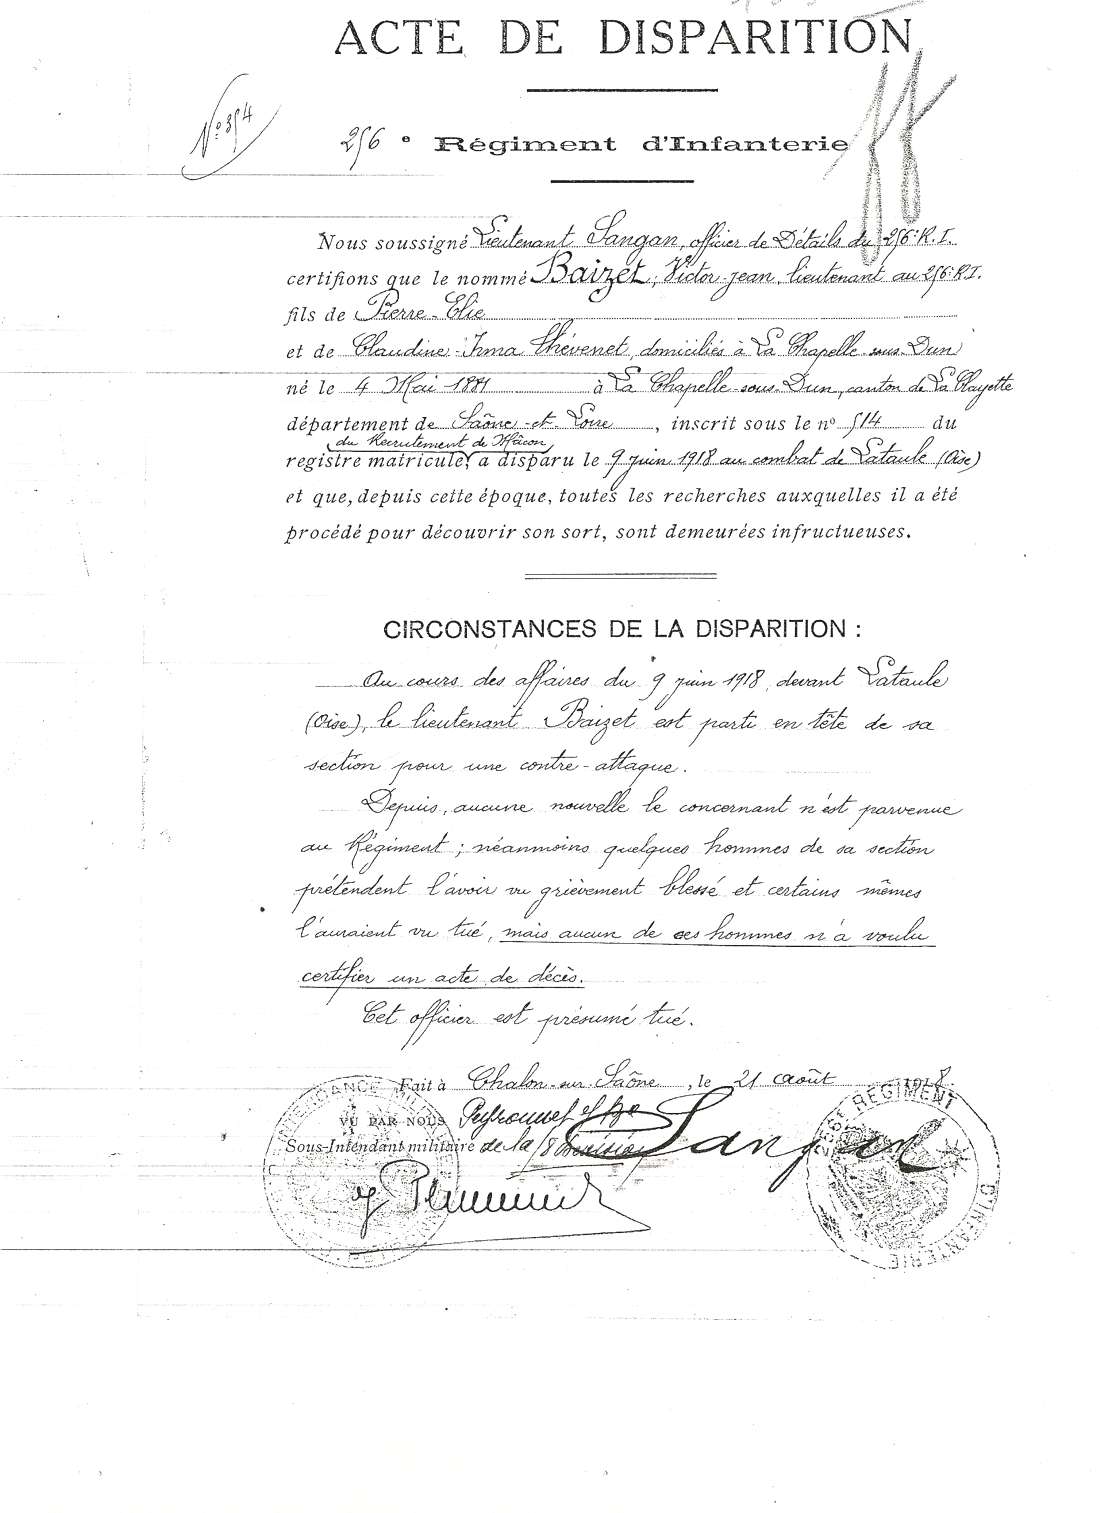 ACTE DE DISPARITION
N° 354
256 e Régiment d'Infanterie
Nous soussigné Lieutenant Sangan, officier de Détails du 256e R.I.
certifions que le nommé Baizet, Victor-Jean, lieutenant au 256e R.I.
fils de Pierre-Elie
et de Claudine-Irma Thévenet, domiciliés à La Chapelle-sous-Dun
né le 4 Mai 1881 à La Chapelle-sous-Dun, canton de La Clayette
département de Saône-et-Loire, inscrit sous le n° 514 du
du Recrutement de Mâcon
registre matricule, a disparu le 9 juin 1918 au combat de Lataule (Oise)
et que, depuis cette époque, toutes les recherches auxquelles il a été
procédé pour découvrir son sort, sont demeurées infructueuses.
CIRCONSTANCES DE LA DISPARITION :
Au cours des affaires du 9 juin 1918, devant Lataule
(Oise), le lieutenant Baizet est parti en tête de sa
section pour une contre-attaque.
Depuis, aucune nouvelle le concernant n'est parvenue
au Régiment ; néanmoins quelques hommes de sa section
prétendent l'avoir vu grièvement blessé et certains mêmes
l'auraient vu tué, mais aucun de ces hommes n'a voulu
certifier un acte de décès.
Cet officier est présumé tué.
Fait à Chalon-sur-Saône, le 21 août 1918.
VU PAR NOUS
Sous-Intendant militaire de la
Sangan
256e REGIMENT D'INFANTERIE